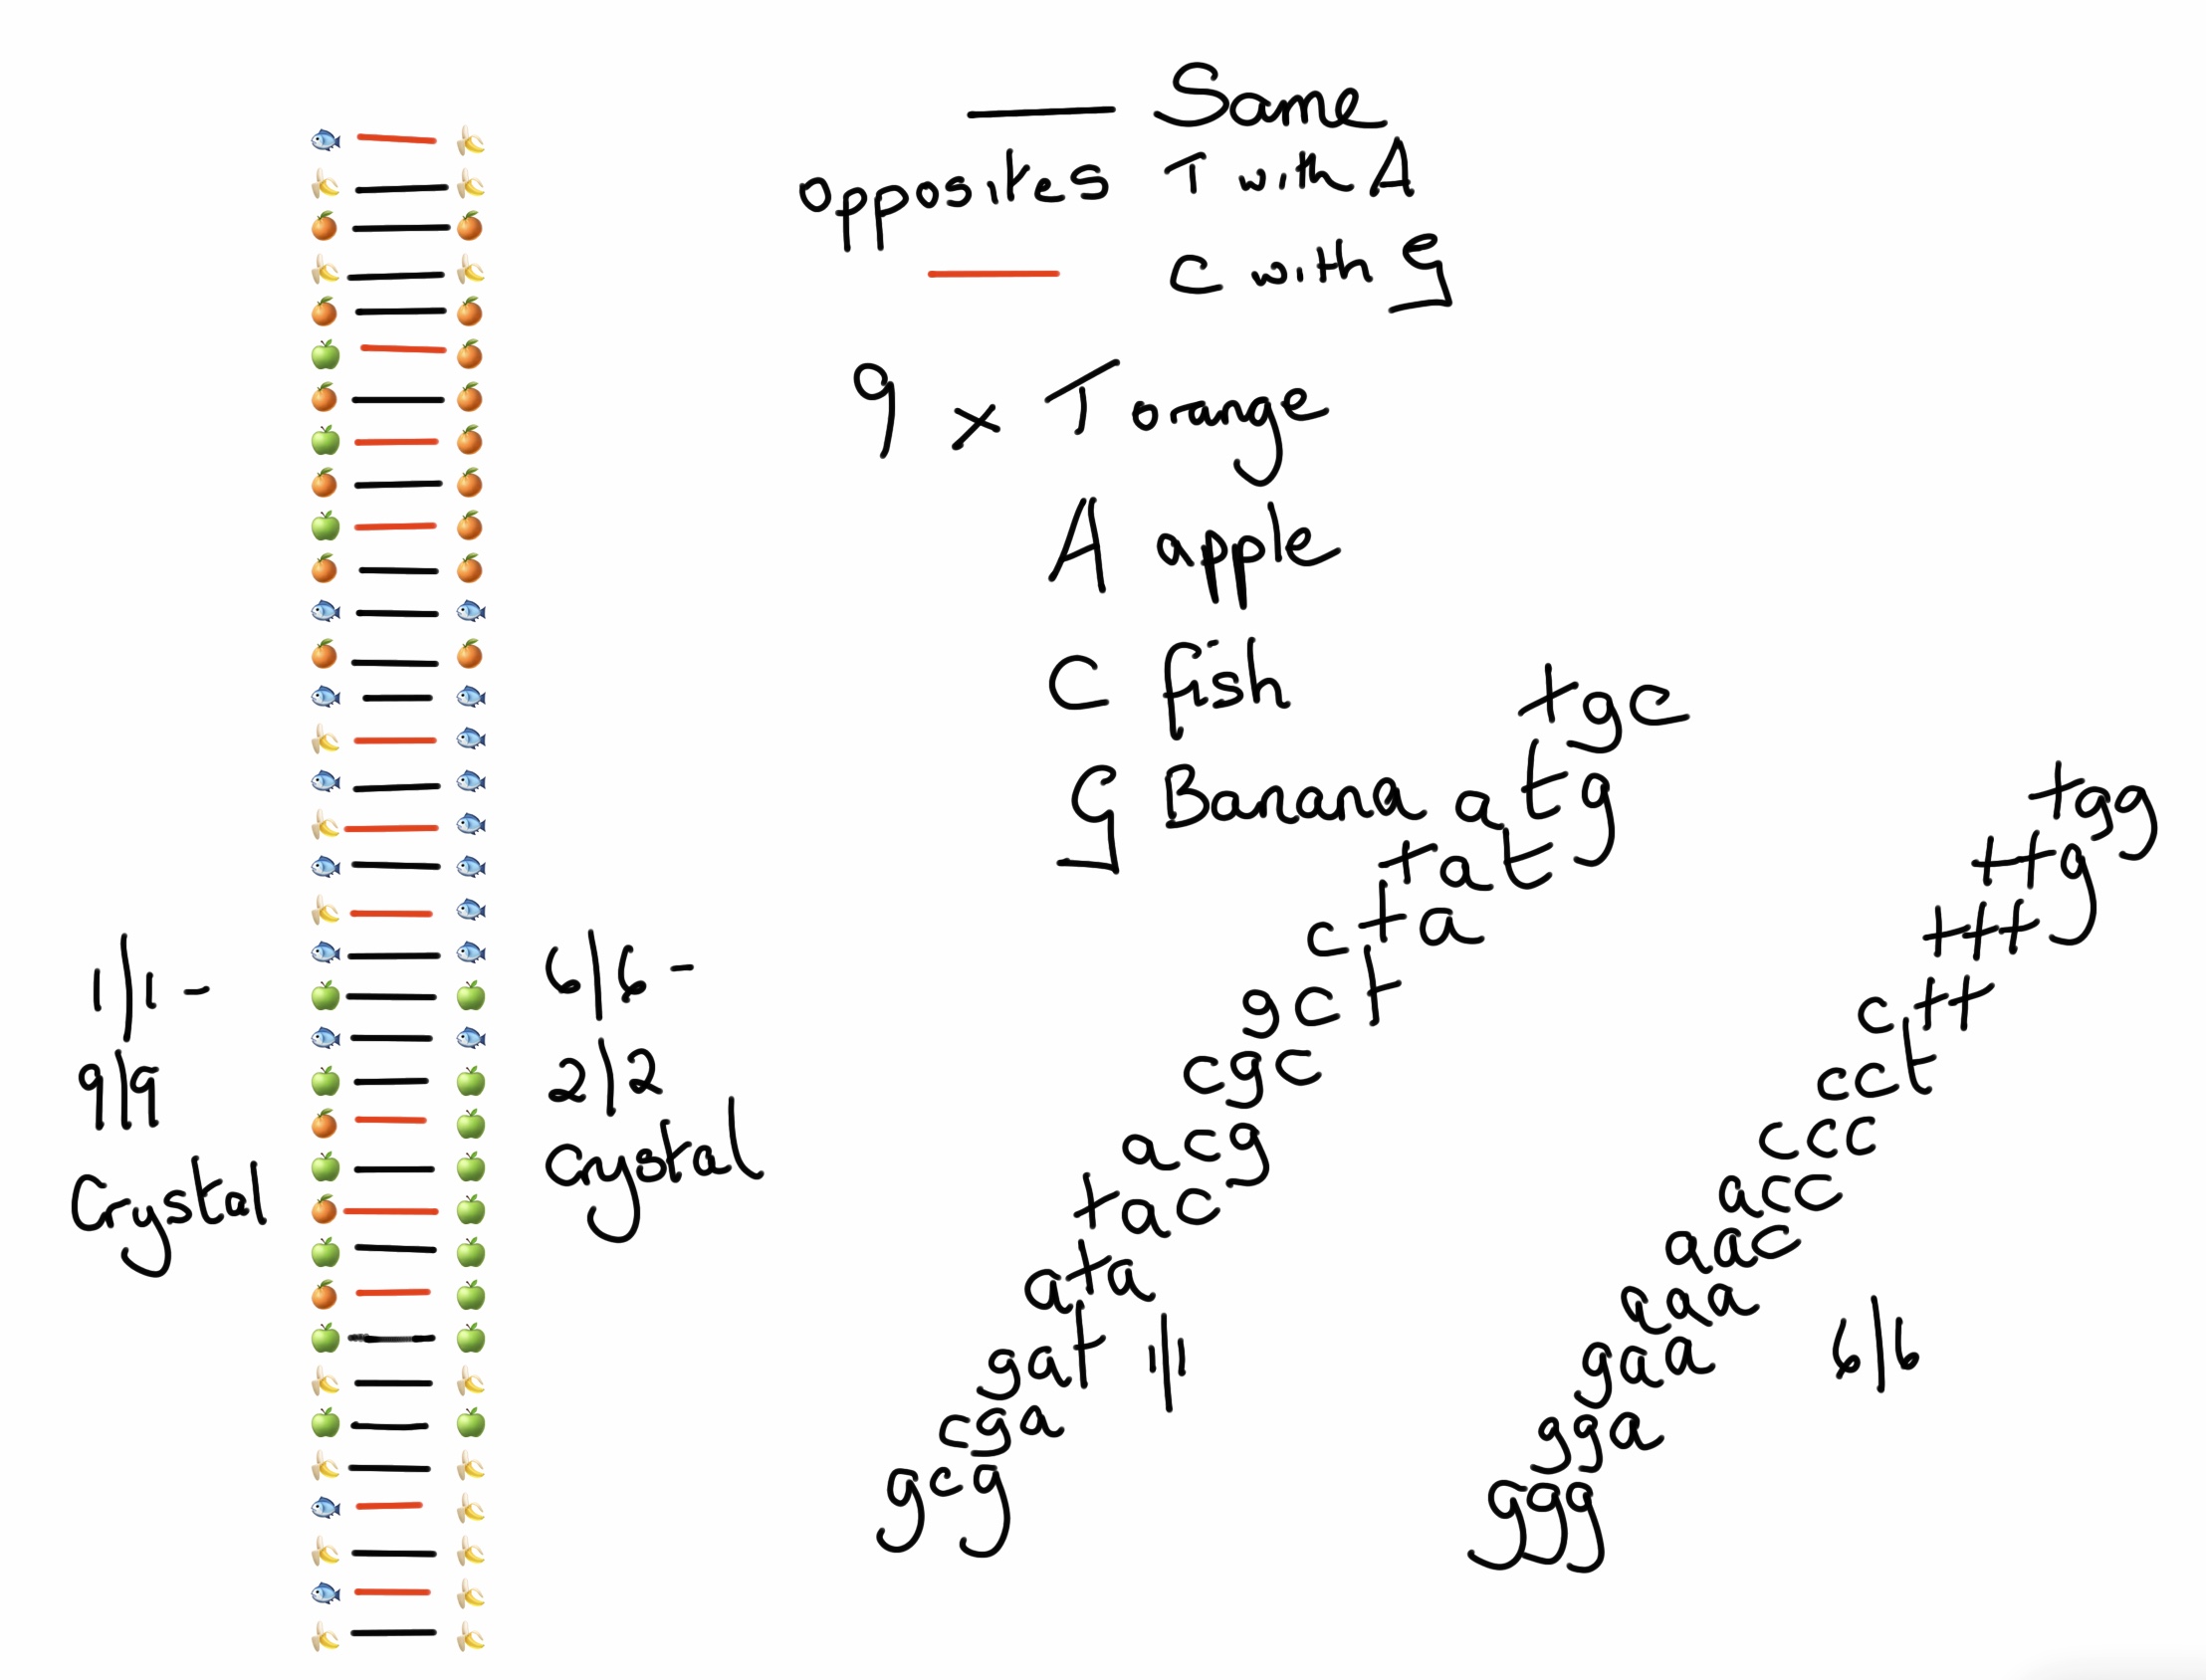 Same
opposites T with A
C with G
9 x T orange
A apple
C fish
G Banana
tgc
atg
tat
cta
gct
cgc
acg
tac
ata
gat 1|1
cga
gcg
tgg
ttg
ttt
ctt
cct
ccc
acc
aac
aaa
gaa 6|6
gga
ggg
1|1 -
9|9
Crystal
6|6 -
2|2
Crystal